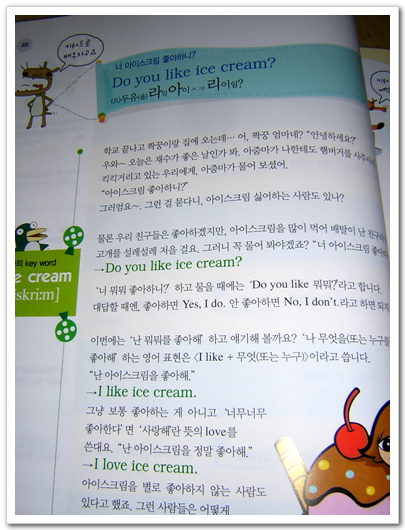 22
너 아이스크림 좋아하니?
Do you like ice cream?
학교 끝나고 짝꿍이랑 집에 오는데… 어, 짝꿍 엄마네? “안녕하세요?”
우와~ 오늘은 재수가 좋은 날인가 봐. 아줌마가 나한테도 햄버거를
킥킥거리고 있는 우리에게, 아줌마가 물어 보셨어.
“아이스크림 좋아하니?”
그러엄요~, 그런 걸 묻다니, 아이스크림 싫어하는 사람도 있나?
물론 우리 친구들은 좋아하겠지만, 아이스크림을 많이 먹어 배탈이 난
고개를 설레설레 저을 걸요. 그러니 꼭 물어 봐야겠죠? “너 아이스크림
→Do you like ice cream?
‘너 뭐뭐 좋아하니?’ 하고 물을 때에는 ‘Do you like 뭐뭐?’라고 합니다.
대답할 때엔, 좋아하면 Yes, I do. 안 좋아하면 No, I don't.라고 하면
key word
cream
skri:m]
이번에는 ‘난 뭐뭐를 좋아해’ 하고 얘기해 볼까요? ‘나 무엇을(또는 누구를)
좋아해’ 하는 영어 표현은 〈I like + 무엇(또는 누구)〉이라고 씁니다.
“난 아이스크림을 좋아해.”
→I like ice cream.
그냥 보통 좋아하는 게 아니고 ‘너무너무
좋아한다’면 ‘사랑해’란 뜻의 love를
쓴대요. “난 아이스크림을 정말 좋아해.”
→I love ice cream.
아이스크림을 별로 좋아하지 않는 사람도
있다고 했죠. 그런 사람들은 어떻게